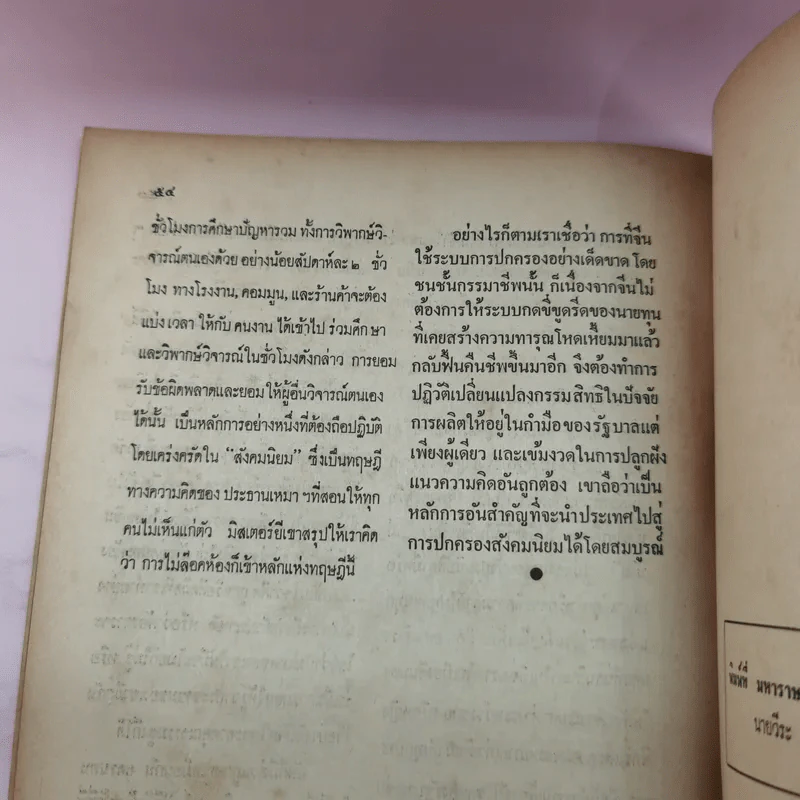 ๕๔
ชั่วโมงการศึกษาปัญหารวม ทั้งการวิพากษ์วิ-
จารณ์ตนเองด้วย อย่างน้อยสัปดาห์ละ ๒ ชั่ว
โมง ทางโรงงาน, คอมมูน, และร้านค้าจะต้อง
แบ่งเวลา ให้กับ คนงาน ได้เข้าไป ร่วมศึกษา
และวิพากษ์วิจารณ์ในชั่วโมงดังกล่าว การยอม
รับข้อผิดพลาดและยอมให้ผู้อื่นวิจารณ์ตนเอง
ได้นั้น เป็นหลักการอย่างหนึ่งที่ต้องถือปฏิบัติ
โดยเคร่งครัดใน “สังคมนิยม” ซึ่งเป็นทฤษฎี
ทางความคิดของ ประธานเหมา ฯที่สอนให้ทุก
คนไม่เห็นแก่ตัว มิสเตอร์ยีเซาสรุปให้เราคิด
ว่า การไม่ล๊อคห้องก็เข้าหลักแห่งทฤษฎีนี้
อย่างไรก็ตามเราเชื่อว่า การที่จีน
ใช้ระบบการปกครองอย่างเด็ดขาด โดย
ชนชั้นกรรมาชีพนั้น ก็เนื่องจากจีนไม่
ต้องการให้ระบบกดขี่ขูดรีดของนายทุน
ที่เคยสร้างความทารุณโหดเหี้ยมมาแล้ว
กลับฟื้นคืนชีพขึ้นมาอีก จึงต้องทำการ
ปฏิวัติเปลี่ยนแปลงกรรมสิทธิในปัจจัย
การผลิตให้อยู่ในกำมือของรัฐบาลแต่
เพียงผู้เดียว และเข้มงวดในการปลูกฝัง
แนวความคิดอันถูกต้อง เขาถือว่าเป็น
หลักการอันสำคัญที่จะนำประเทศไปสู่
การปกครองสังคมนิยมได้โดยสมบูรณ์
พิมพ์ที่ มหาราษ
นายวีระ